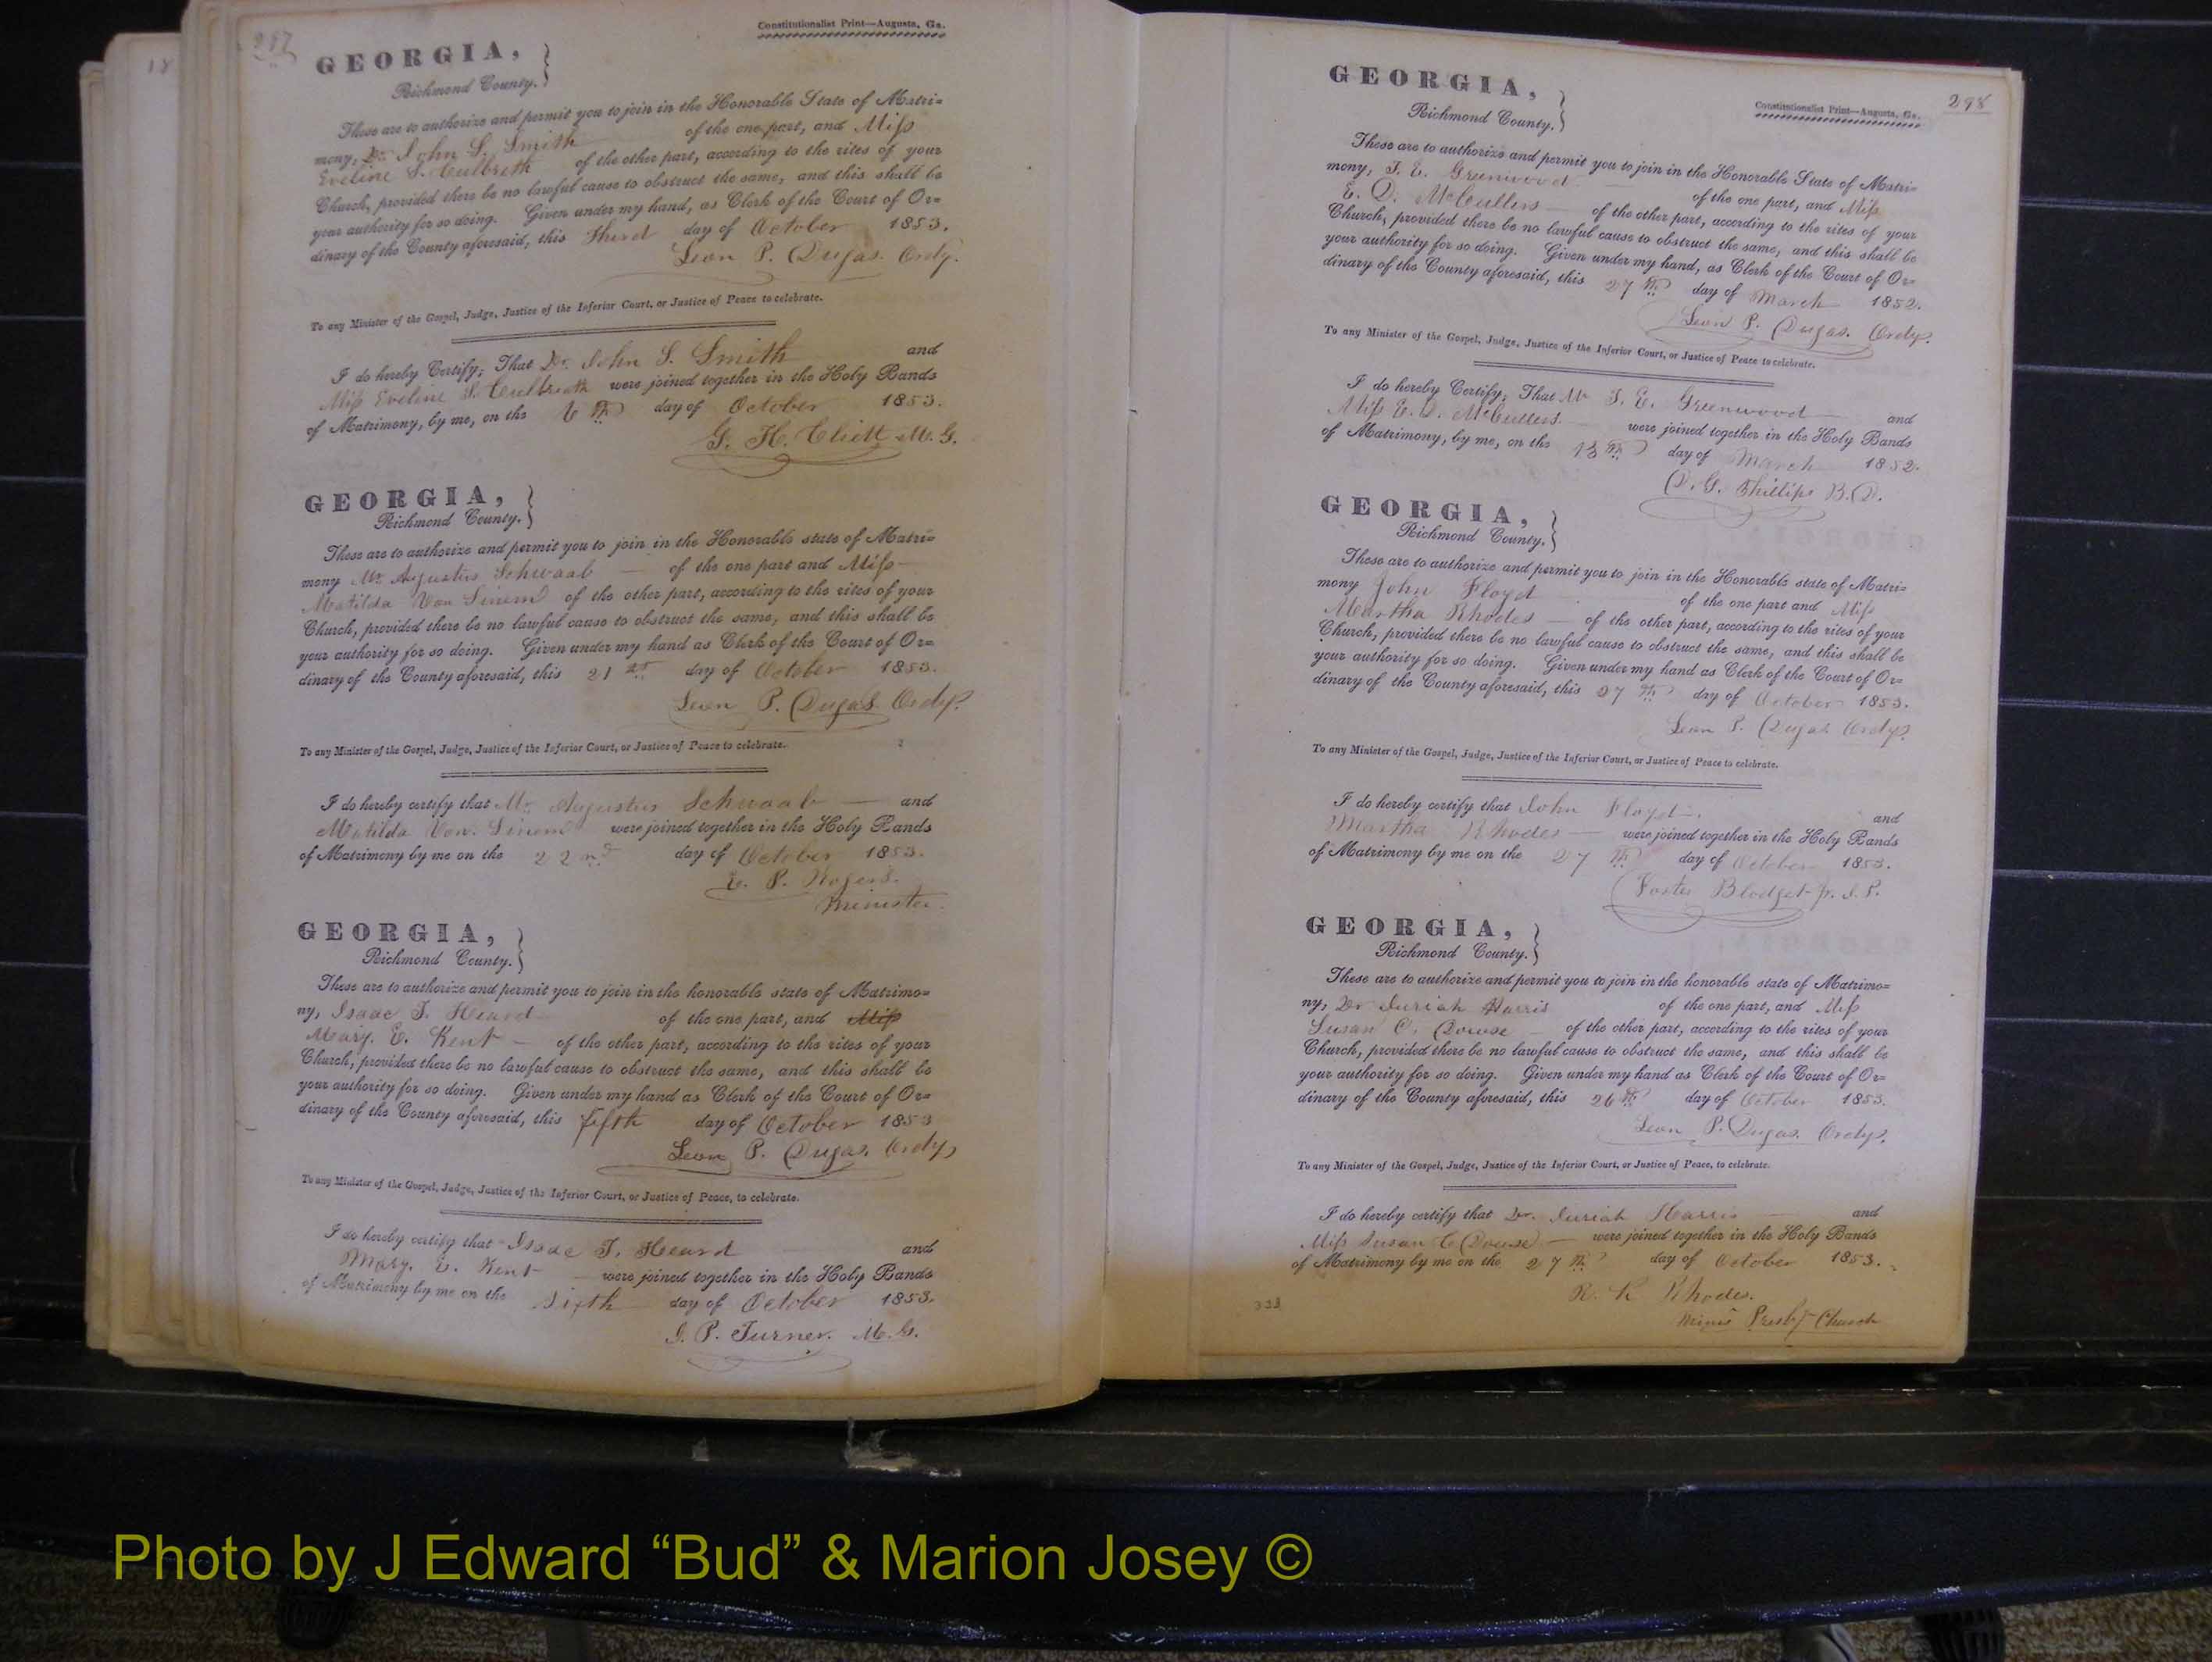 297
Constitutionalist Print—Augusta, Ga.
GEORGIA,
Richmond County.
These are to authorize and permit you to join in the Honorable State of Matri=
mony, Dr. John S. Smith of the one part, and Miss
Eveline S. Culbreth of the other part, according to the rites of your
Church, provided there be no lawful cause to obstruct the same, and this shall be
your authority for so doing. Given under my hand, as Clerk of the Court of Or=
dinary of the County aforesaid, this Third day of October 1853.
Leon P. Dugas. Ordy.
To any Minister of the Gospel, Judge, Justice of the Inferior Court, or Justice of Peace to celebrate.
I do hereby Certify, That Dr. John S. Smith and
Miss Eveline S. Culbreath were joined together in the Holy Bands
of Matrimony, by me, on the 6th day of October 1853.
G. H. Cliett M. G.
GEORGIA,
Richmond County.
These are to authorize and permit you to join in the Honorable state of Matri=
mony Mr. Augustus Schwaab of the one part and Miss
Matilda Von Sinem of the other part, according to the rites of your
Church, provided there be no lawful cause to obstruct the same, and this shall be
your authority for so doing. Given under my hand as Clerk of the Court of Or=
dinary of the County aforesaid, this 21st day of October 1853.
Leon P. Dugas. Ordy.
To any Minister of the Gospel, Judge, Justice of the Inferior Court, or Justice of Peace to celebrate.
I do hereby certify that Mr. Augustus Schwaab and
Matilda Von. Sinem were joined together in the Holy Bands
of Matrimony by me on the 22nd day of October 1853.
E. P. Rogers.
Minister.
GEORGIA,
Richmond County.
These are to authorize and permit you to join in the honorable state of Matrimo=
ny, Isaac T. Heard of the one part, and Miss
Mary. E. Kent of the other part, according to the rites of your
Church, provided there be no lawful cause to obstruct the same, and this shall be
your authority for so doing. Given under my hand as Clerk of the Court of Or=
dinary of the County aforesaid, this fifth day of October 1853
Leon P. Dugas. Ordy
To any Minister of the Gospel, Judge, Justice of the Inferior Court, or Justice of Peace, to celebrate.
I do hereby certify that Isaac T. Heard and
Mary. E. Kent were joined together in the Holy Bands
of Matrimony by me on the Sixth day of October 1853.
J. P. Turner. M. G.
298
Constitutionalist Print—Augusta, Ga.
GEORGIA,
Richmond County.
These are to authorize and permit you to join in the Honorable State of Matri=
mony, T. E. Greenwood of the one part, and Miss
E. D. McCullers of the other part, according to the rites of your
Church, provided there be no lawful cause to obstruct the same, and this shall be
your authority for so doing. Given under my hand, as Clerk of the Court of Or=
dinary of the County aforesaid, this 27th day of March 1852.
Leon P. Dugas. Ordy.
To any Minister of the Gospel, Judge, Justice of the Inferior Court, or Justice of Peace to celebrate.
I do hereby Certify, That Mr T. E. Greenwood and
Miss E. D. McCullers. were joined together in the Holy Bands
of Matrimony, by me, on the 13th day of March 1852.
D. G. Phillips B. D.
GEORGIA,
Richmond County.
These are to authorize and permit you to join in the Honorable state of Matri=
mony John Floyd of the one part and Miss
Martha Rhodes of the other part, according to the rites of your
Church, provided there be no lawful cause to obstruct the same, and this shall be
your authority for so doing. Given under my hand as Clerk of the Court of Or=
dinary of the County aforesaid, this 27th day of October 1853.
Leon P. Dugas Ordy.
To any Minister of the Gospel, Judge, Justice of the Inferior Court, or Justice of Peace to celebrate.
I do hereby certify that John Floyd. and
Martha Rhodes were joined together in the Holy Bands
of Matrimony by me on the 27th day of October 1853.
Foster Blodget Jr. J. P.
GEORGIA,
Richmond County.
These are to authorize and permit you to join in the honorable state of Matrimo=
ny, Dr Juriah Harris of the one part, and Miss
Susan C. Dowse of the other part, according to the rites of your
Church, provided there be no lawful cause to obstruct the same, and this shall be
your authority for so doing. Given under my hand as Clerk of the Court of Or=
dinary of the County aforesaid, this 26th day of October 1853.
Leon P. Dugas. Ordy.
To any Minister of the Gospel, Judge, Justice of the Inferior Court, or Justice of Peace, to celebrate.
I do hereby certify that Dr. Juriah Harris and
Miss Susan C Dowse were joined together in the Holy Bands
of Matrimony by me on the 27th day of October 1853.
R. K Rhodes.
Presby Church
333
Photo by J Edward “Bud” & Marion Josey ©